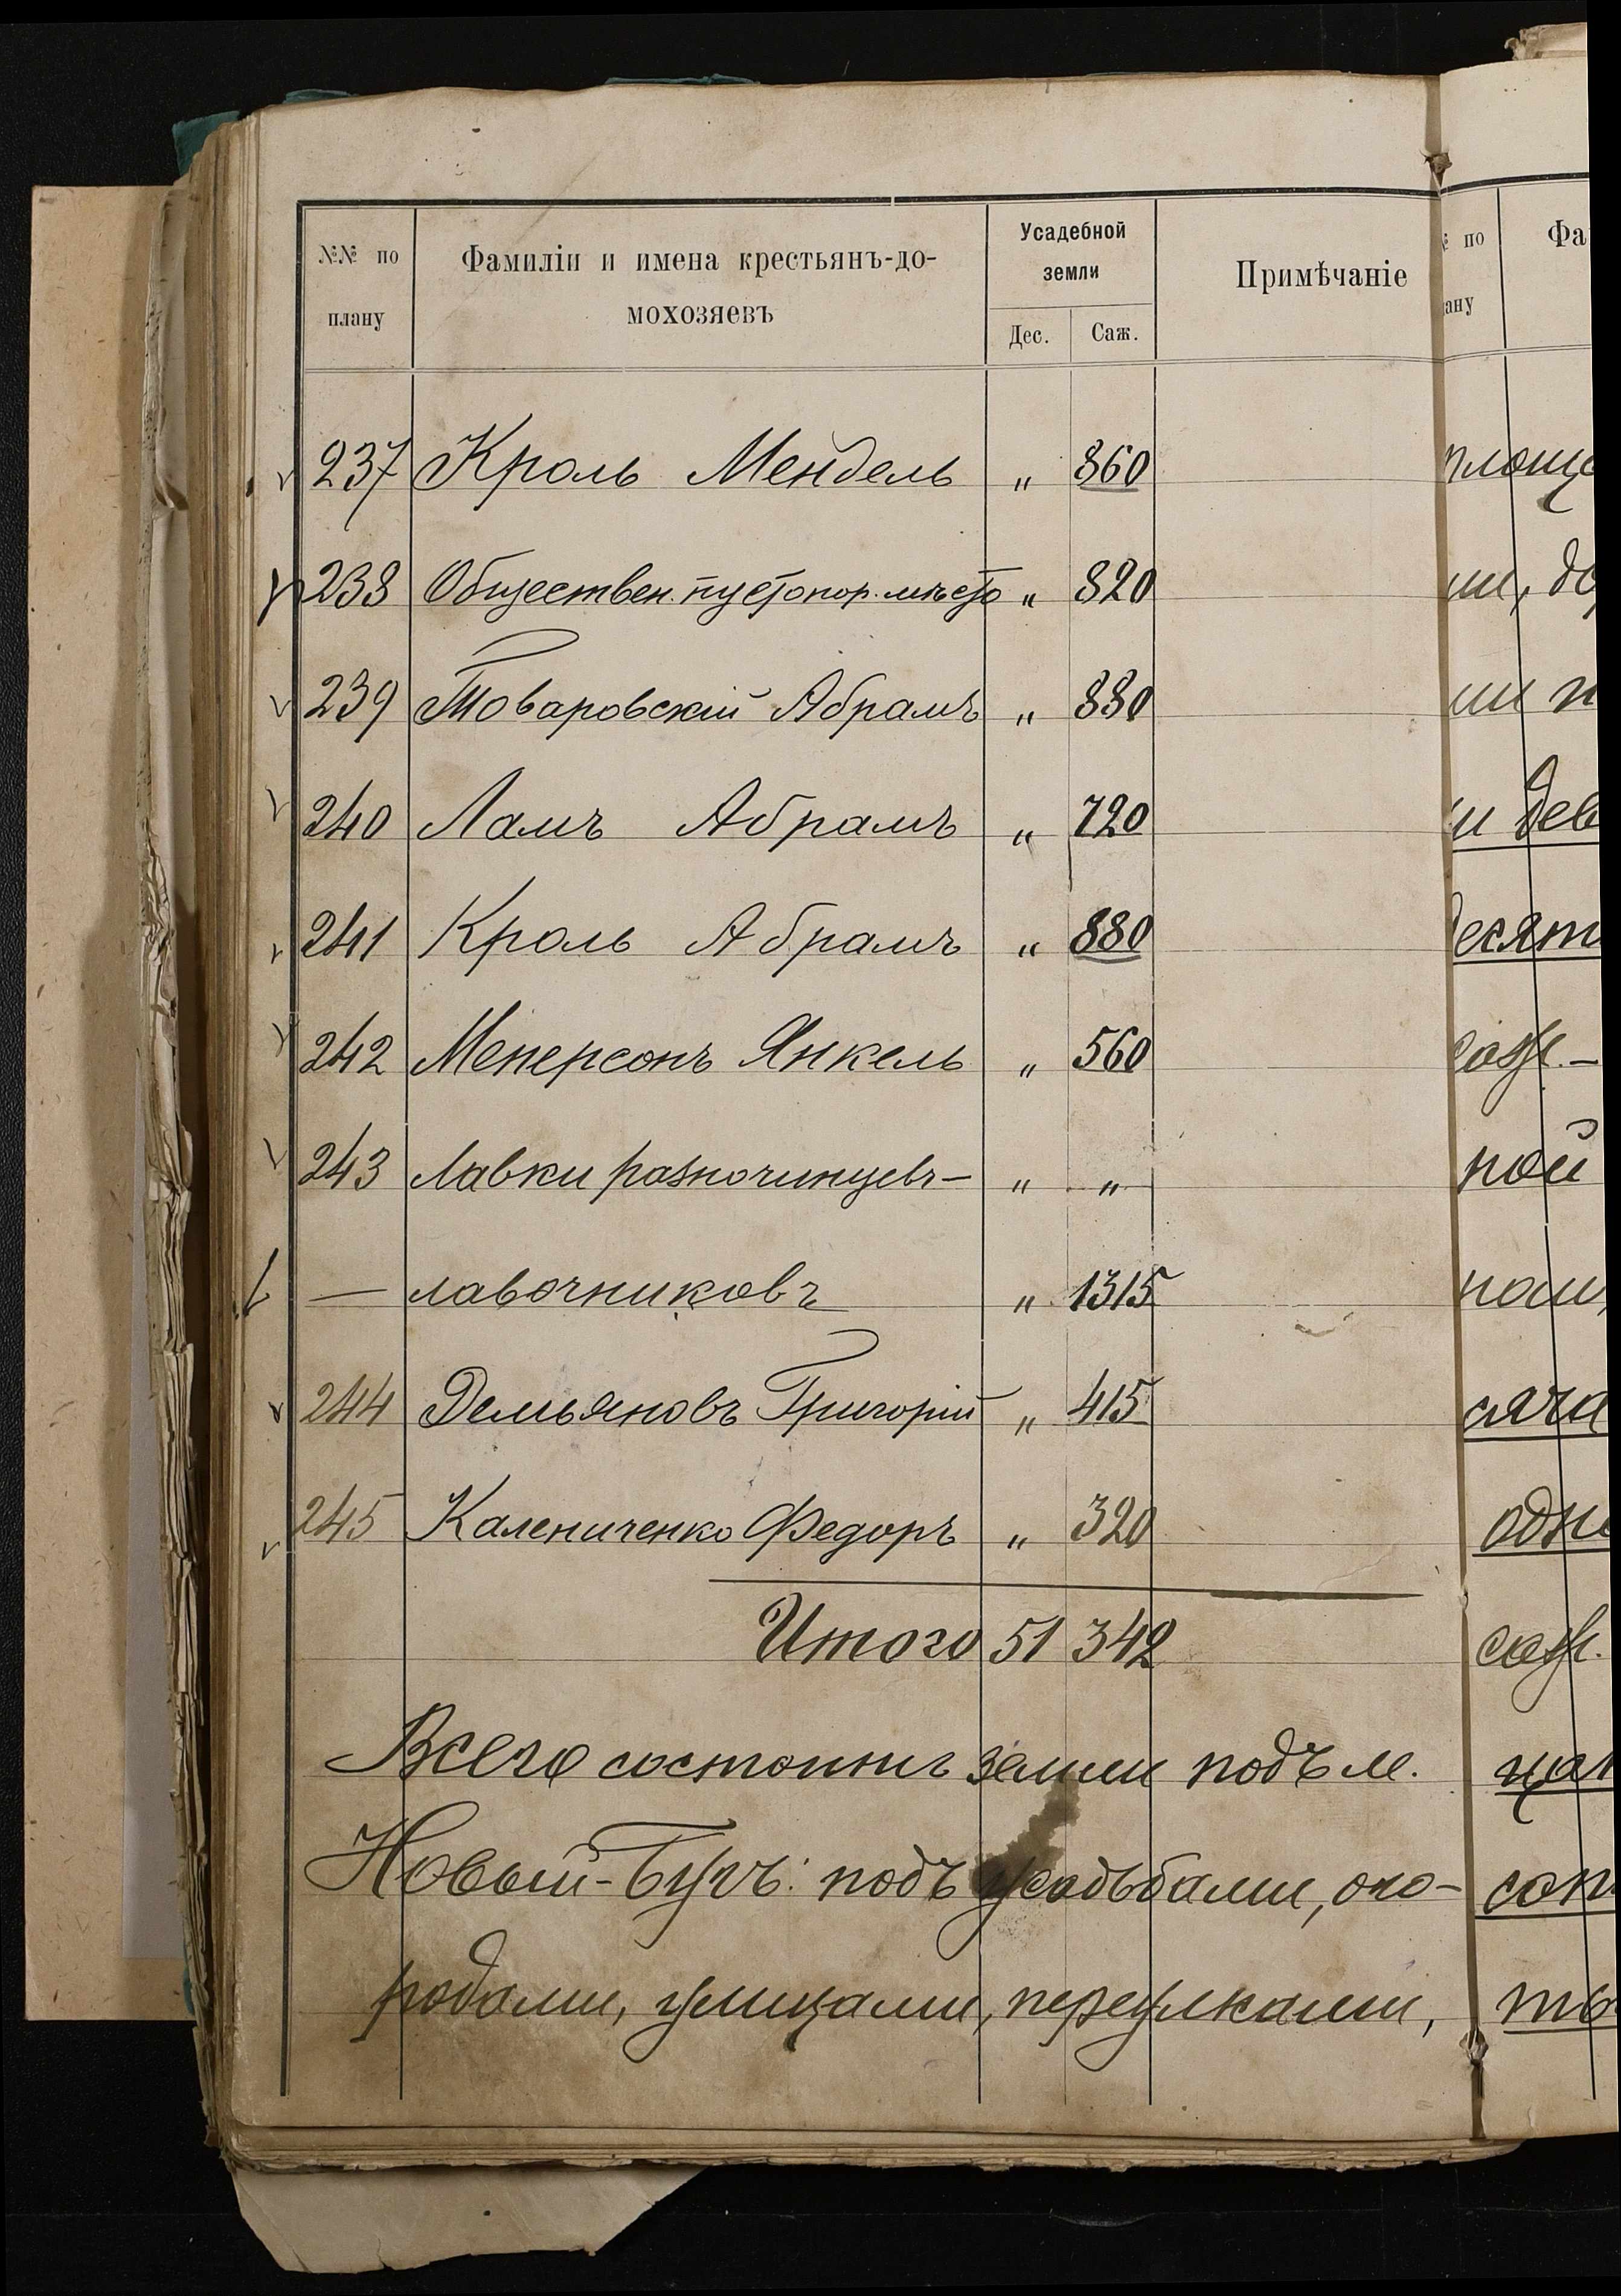 №№ по плану
Фамиліи и имена крестьянъ-до-
мохозяевъ
Усадебной
земли
Дес. Саж.
Примѣчаніе
237 Кроль Мендель „ 860
238 Обществен. пустопор. мѣсто „ 820
239 Товаровскій Абрамъ „ 880
240 Ламъ Абрамъ „ 720
241 Кроль Абрамъ „ 880
242 Менерсонъ Янкель „ 560
243 Лавки разночинцевъ- „ „
— лавочниковъ „ 1315
244 Демьяновъ Григорій „ 415
245 Калениченко Федоръ „ 320
Итого 51 342
Всего состоитъ земли подъ м.
Новый-Бугъ: подъ усадьбами, ого-
родами, улицами, переулками,
по
ану
Фа
площа
ми, до
ми п
и дев
десят
саж. —
ной
наш
сяча
одн
саж.
цат
сот
ты